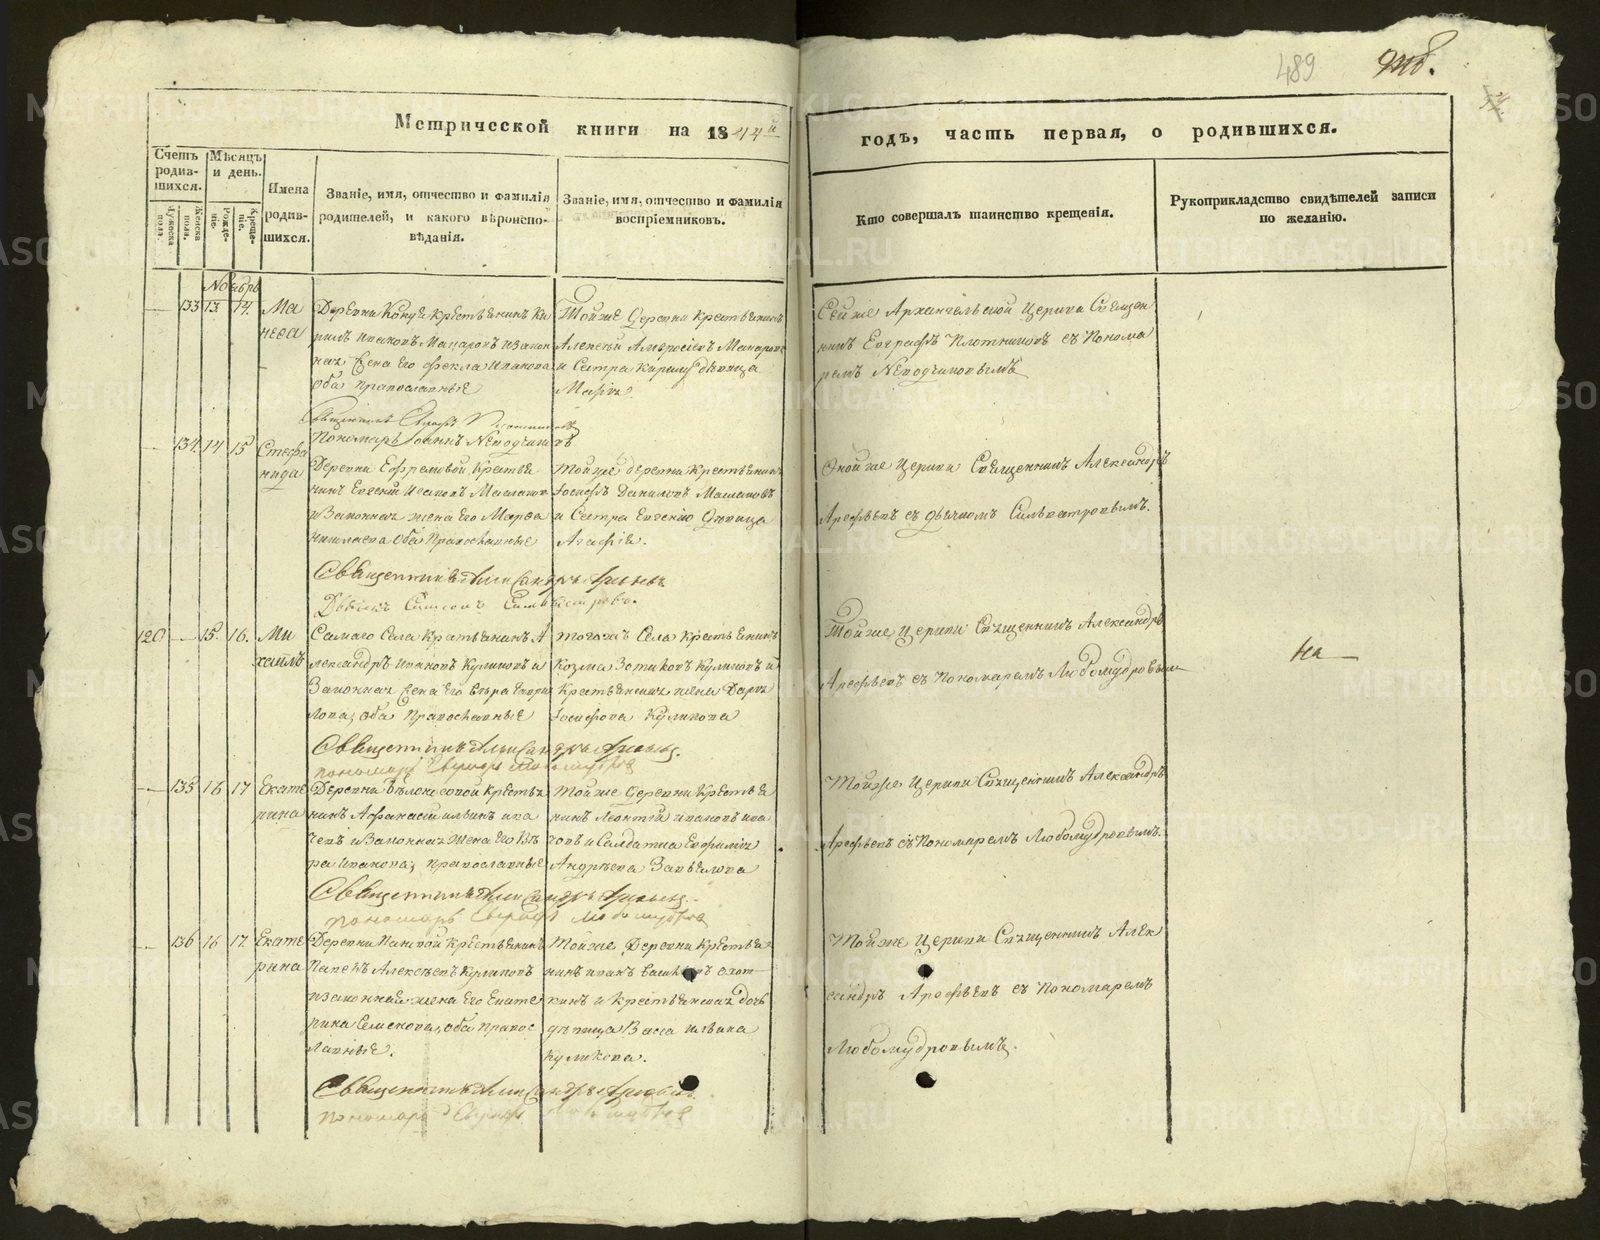 489
Метрической книги на 1844й
годъ, часть первая, о родившихся.
Счетъ родив-шихся.
Мужеска пола.
Женска пола.
Мѣсяцъ и день.
Рожде-ніе.
Креще-ніе.
Имена родив-шихся.
Званіе, имя, отчество и фамилія
родителей, и какого вѣроиспо-
вѣданія.
Званіе, имя, отчество и фамилія
воспріемниковъ.
Кто совершалъ таинство крещенія.
Рукоприкладство свидѣтелей записи
по желанію.
Ноябрь
133 13. 14.
Ма
неѳа
Деревни крестьянинъ Ки
рилъ Ивановъ Макаровъ и закон
ная жена его Фекла Иванова
оба православные
Той же деревни крестьянинъ
Алексѣй Амвросіевъ Макаровъ
и сестра Кирилу дѣвица
Марія
Сей же Архангельской церкви Священ
никъ Евграфъ Плотниковъ съ Понома
ремъ Неводчиковымъ
Священникъ Евграфъ Плотниковъ
Пономарь Іоаннъ Неводчиковъ
134. 14 15
Стефа
нида
Деревни Ефремовой крестья
нинъ Евгеній Исаковъ Маслаковъ
и законная жена его Марѳа
Николаева оба православные
Той же деревни крестьянинъ
Іосифъ Даниловъ Маслаковъ
и сестра Евгенію дѣвица
Агафія.
Оной же церкви Священникъ Александръ
Арефьевъ съ дьячкомъ Сильвестровымъ.
Священникъ Александръ Арефьевъ
Дьячекъ Симеонъ Сильвестровъ.
120 15. 16.
Ми
хаилъ
Самаго села крестьянинъ А
лександръ Ивановъ Куликовъ и
законная жена его Вѣра Гаври
лова, оба православные
Того жъ села крестьянинъ
Козма Зотиковъ Куликовъ и
крестьянская жена Дарья
Іосифова Куликова
Той же церкви Священникъ Александръ
Арефьевъ съ пономаремъ Любомудровымъ
Священникъ Александръ Арефьевъ.
пономарь Евграфъ Любомудровъ
135 16 17
Екате
рина
Деревни Бѣлоносовой крестья
нинъ Афанасій Ильинъ Ива
чевъ и законная жена его Вѣ
ра Иванова, православные
Той же деревни крестья
нинъ Леонтій Ивановъ Ива
човъ и солдатка Евфимія
Андрѣева Завьялова
Той же церкви Священникъ Александръ
Арефьевъ съ Пономаремъ Любомудровымъ.
Священникъ Александръ Арефьевъ.
пономарь Евграфъ Любомудровъ
136 16 17.
Екате
рина
Деревни крестьянинъ
Павелъ Алексѣевъ Куликовъ
и законная жена его Екате
рина Семенова, оба правос
лавные.
Той же деревни крестья
нинъ Иванъ Охот
кинъ и крестьянская дочь
дѣвица Васса Ильина
Куликова.
Той же церкви Священникъ Алек
сандръ Арефьевъ съ пономаремъ
Любомудровымъ.
Священникъ Александръ Арефьевъ.
пономарь Евграфъ Любомудровъ
METRIKI.GASO-URAL.RU